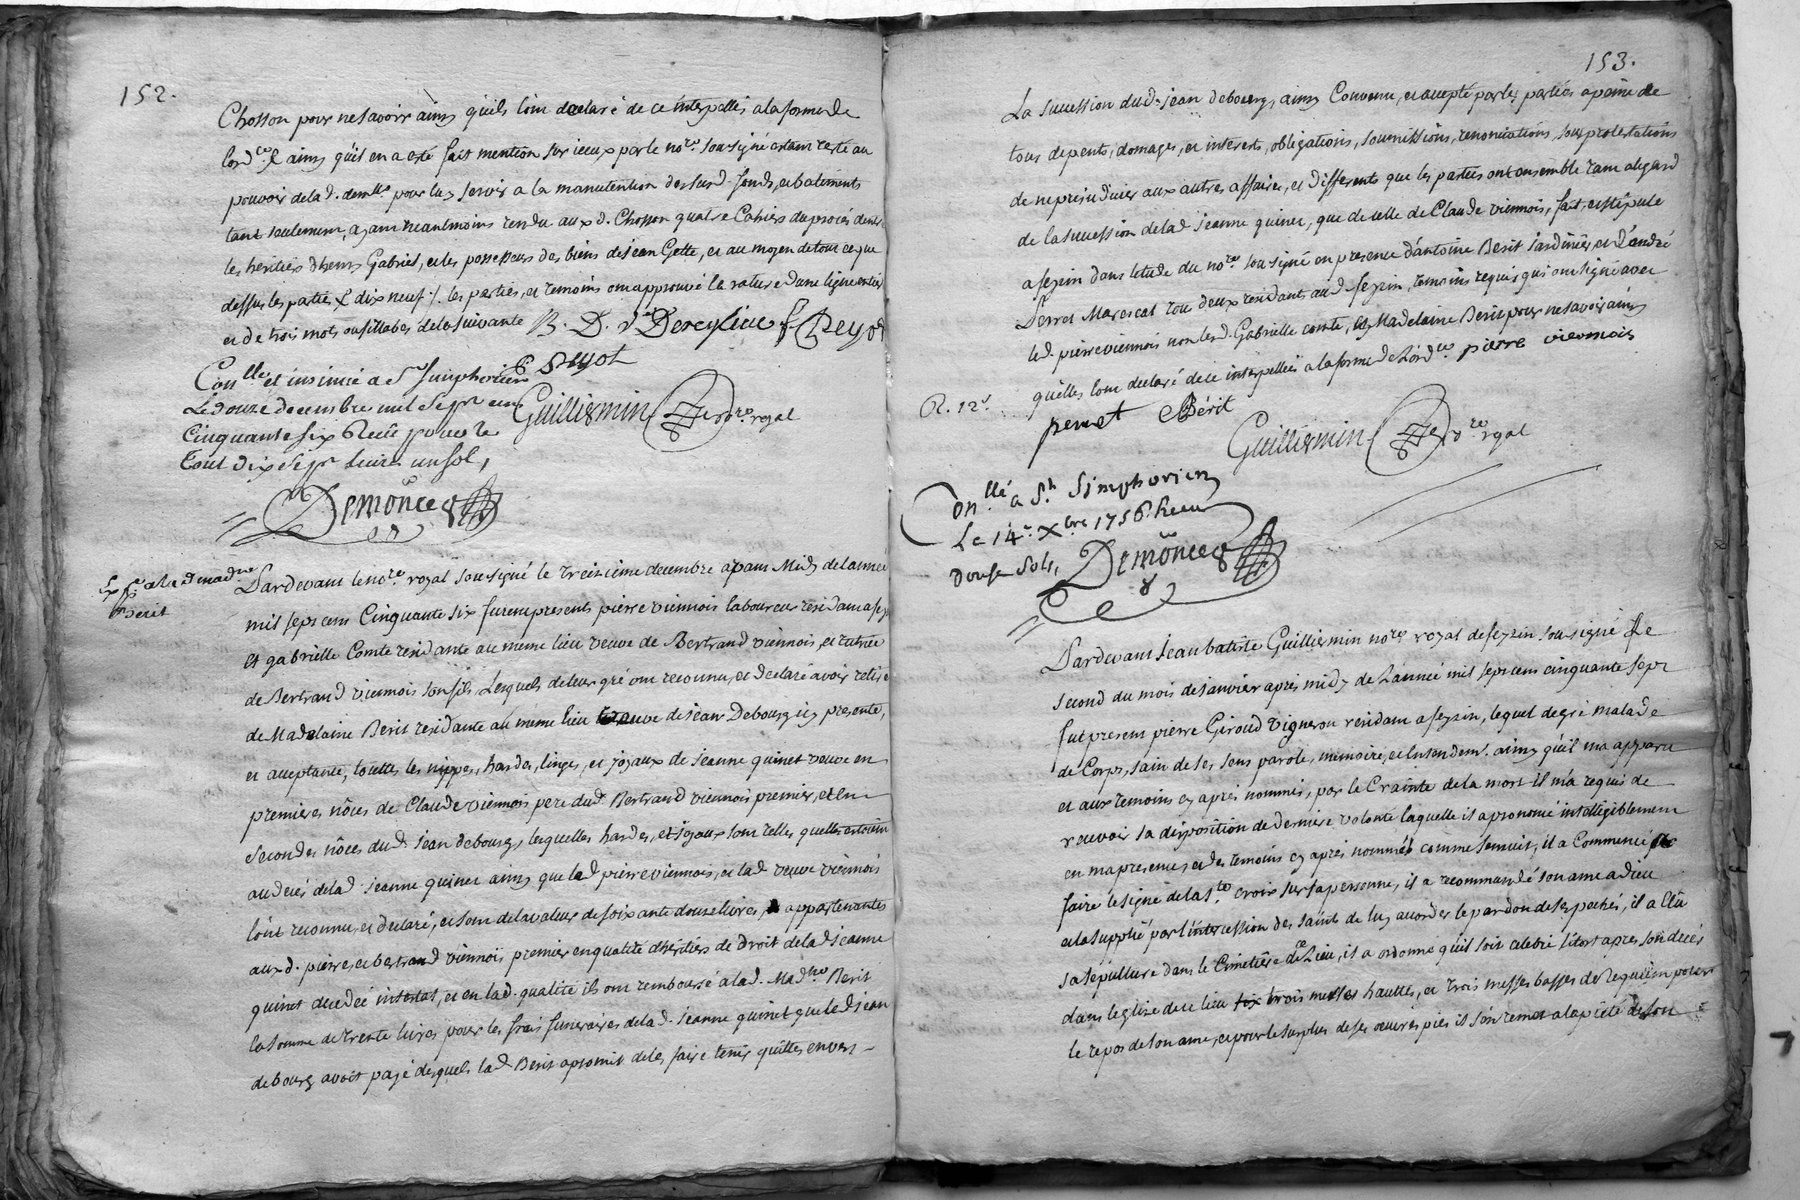 152.
Chosson pour ne savoir ainsy qu'ils l'ont declaré de ce interpellés a la forme de
l'ord.ce & ainsy qu'il en a eté fait mention sur iceux par le no.re soussigné etant resté au
pouvoir de la d. dem.lle pour luy servir a la manutention des susd. fonds, et batiments
tant seulement, ayant neantmoins rendu aux d. Chosson quatre Cahiers du procés dentre
les heritiers dhenry Gabriel, et les possesseurs des biens de jean Gette, et au moyen de tout ce que
dessus les parties & dix neuf ./. les parties, et temoins ont approuvé la rature dune ligne entiere
et de trois mots ou sillabes de la suivante B. D.
Peyot
Con.llé et insinué a St Simphorien
Le douze decembre mil sept cent
Cinquante six Receu pour le
Tout dix sept livres un sol,
Guilliermin no.re royal
Demõnceo
Exp.é a la d mad.ne
Berit
Pardevant le no.re royal soussigné le treizieme decembre apres Midy de l'année
mil sept cent Cinquante six furent presents pierre viennois laboureur residant a sezin
et gabrielle Comte residante au meme lieu veuve de Bertrand viennois, et tutrice
de Bertrand viennois son fils Lesquels de leur gré ont reconnu, et declaré avoir retiré
de Madelaine Berit residante au meme lieu veuve de jean Debourg icy presente,
et acceptante, toutes les nippes, hardes, linges, et joyaux de jeanne quinet veuve en
premieres nôces de Claude viennois pere du d. Bertrand viennois premier, et en
secondes nôces du d. jean debourg lesquelles hardes, et joyaux sont telles quelles etoient
au decés de la d. jeanne quinet ainsy que led pierre viennois, et lad. veuve viennois
l'ont reconnu, et declaré, et sont de la valeur de soixante douse livres, appartenantes
aux d. pierre, et bertrand viennois premier en qualité dheritiers de droit de la d jeanne
quinet decedée intestat, et en lad. qualité ils ont remboursé a la d. Mad.ne Berit
la somme de trente livres pour les frais funeraires de la d. jeanne quinet que le d jean
debourg avoit payé desquels la d. Berit a promit de les faire tenir quittes envers
153.
La succession du d. jean debourg, ainsy Convenu, et accepté par les parties a peine de
tous depents, domages, et interets, obligations, soumissions, renonciations, sous protestations
de ne prejudicier aux autres affaires, et differents que les parties ont ensemble tant a legard
de la succession de la d jeanne quinet, que de celle de Claude viennois, fait, et stipulé
a sezin dans letude du no.re soussigné en presence d'antoine Berit jardinier, et d'andré
Perret Marescat tous deux residants aud. sezin, temoins requis qui ont signé avec
led. pierre viennois non les d. Gabrielle comte, et Madelaine Berit pour ne savoir ainsy
qu'elles l'ont declaré de ce interpellées a la forme de l'ord.ce pierre viennois
R. 12s.
perret Bérit
Guilliermin no.re royal
Con.llé a St Simphorien
Le 14e Xbre 1756 Receu
douse sols,
Demõnceo
Pardevant jean batiste Guilliermin no.re royal de sezin soussigné Le
second du mois de janvier apres midy de L'année mil sept cent cinquante sept
fut present pierre Giroud vigneron residant a sezin, lequel de gré malade
de Corps, sain de ses sens parole, memoire, et entendem.t ainsy qu'il m'a apparu
et aux temoins cy aprés nommés, par la Crainte de la mort il m'a requis de
recevoir sa disposition de derniere volonté laquelle il a prononcé intelligiblement
en ma presence, et des temoins cy aprés nommés comme s'ensuit, il a Commencé de
faire le signe de la S.te croix sur sa personne, il a recommandé son ame a dieu
et la supplié par l'intercession des saint de luy accorder le pardon de ses pechés, il a Elû
sa sepulture dans le Cimetiere de ce Lieu, il a ordonné qu'il soit celebré sitot apres son decés
dans leglise de ce lieu six trois messes hauttes, et trois messes basses de requiem pour
le repos de son ame, et pour le surplus de ses oeuvres pies il s'en remet a la piété de son